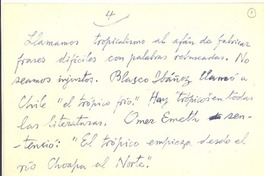 4
Llamamos tropicalismo al afán de fabricar
frases difíciles con palabras rebuscadas. No
seamos injustos. Blasco Ibáñez llamó a
Chile "el trópico frío". Hay trópicos en todas
las literaturas. Omer Emeth sen-
tenció: "El trópico empieza desde el
río Choapa al Norte".